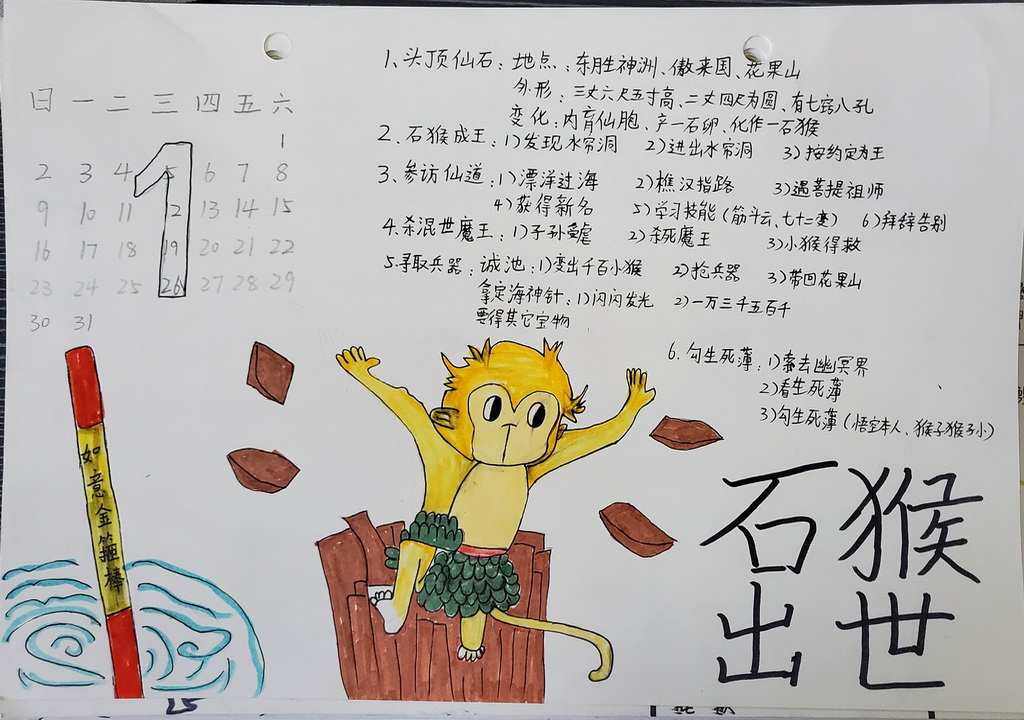 日 一 二 三 四 五 六
1
2 3 4 5 6 7 8
9 10 11 12 13 14 15
16 17 18 19 20 21 22
23 24 25 26 27 28 29
30 31
1
1、头顶仙石：地点：东胜神洲、傲来国、花果山
外形：三丈六尺五寸高、二丈四尺为圆、有七窍八孔
变化：内育仙胞、产一石卵、化作一石猴
2、石猴成王：1)发现水帘洞 2)进出水帘洞 3)按约定为王
3、参访仙道：1)漂洋过海 2)樵汉指路 3)遇菩提祖师
4)获得新名 5)学习技能（筋斗云、七十二变） 6)拜辞告别
4.杀混世魔王：1)子孙受虐 2)杀死魔王 3)小猴得救
5.寻取兵器：诚池：1)变出千百小猴 2)抢兵器 3)带回花果山
拿定海神针：1)闪闪发光 2)一万三千五百千
要得其它宝物
6.勾生死薄：1)索去幽冥界
2)看生死薄
3)勾生死薄（悟空本人、猴子猴子小）
如意金箍棒
石猴
出世